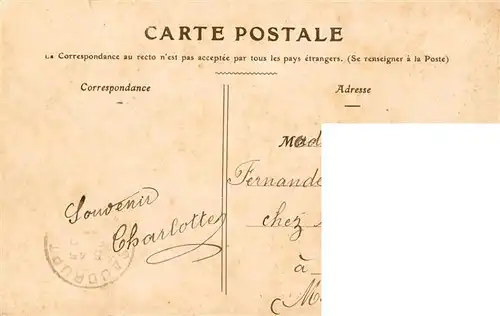 CARTE POSTALE
La Correspondance au recto n'est pas acceptée par tous les pays étrangers. (Se renseigner à la Poste)
Correspondance
Adresse
Souvenir
Charlotte
Mad
Fernande
chez
à
M